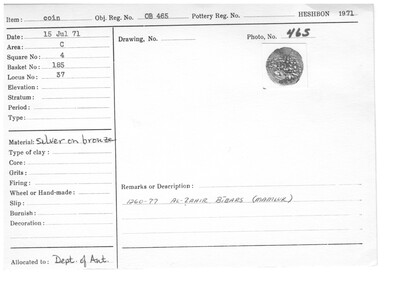 Item: coin Obj. Reg. No. OB 465 Pottery Reg. No. HESHBON 1971
Date: 15 Jul 71
Area: C
Square No: 4
Basket No: 185
Locus No: 37
Elevation:
Stratum:
Period:
Type:
Drawing, No.
Photo, No. 465
Material: Silver on bronze
Type of clay:
Core:
Grits:
Firing:
Wheel or Hand-made:
Slip:
Burnish:
Decoration:
Remarks or Description:
1260-77 AL-ZAHIR BIBARS (MAMLUK)
Allocated to: Dept. of Ant.